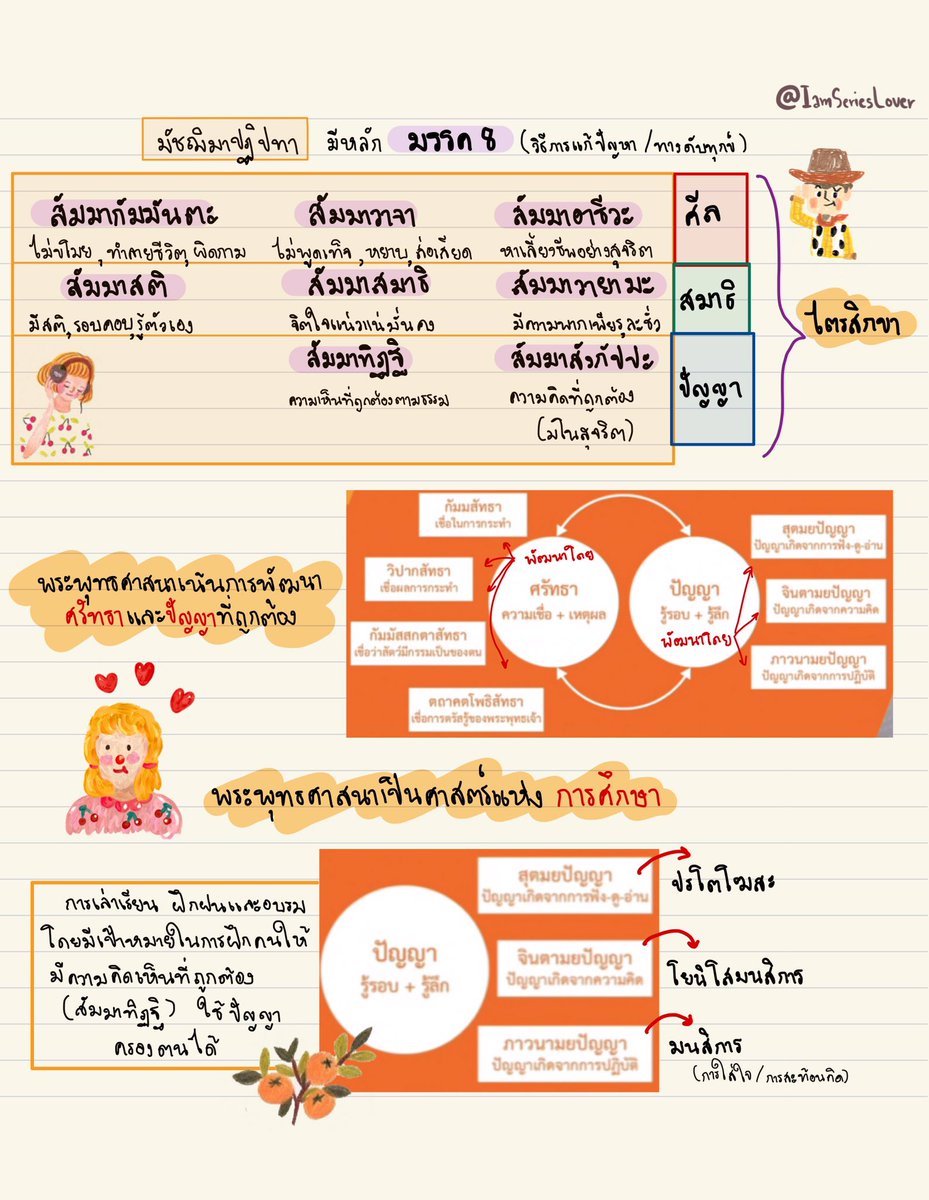 @IamSeriesLover
มัชฌิมาปฏิปทา มีหลัก มรรค 8 (วิธีการแก้ปัญหา/ทางดับทุกข์)
สัมมากัมมันตะ สัมมาวาจา สัมมาอาชีวะ ศีล
ไม่ขโมย, ทำลายชีวิต, ผิดกาม ไม่พูดเท็จ, หยาบ, ส่อเสียด หาเลี้ยงชีพอย่างสุจริต
สัมมาสติ สัมมาสมาธิ สัมมาวายามะ สมาธิ
มีสติ, รอบคอบ, รู้ตัวเอง จิตใจแน่วแน่มั่นคง มีความพากเพียร, ละชั่ว
ไตรสิกขา
สัมมาทิฏฐิ สัมมาสังกัปปะ ปัญญา
ความเห็นที่ถูกต้องตามธรรม ความคิดที่ถูกต้อง
(มโนสุจริต)
พระพุทธศาสนาเน้นการพัฒนา
ศรัทธาและปัญญาที่ถูกต้อง
กัมมสัทธา
เชื่อในการกระทำ
วิปากสัทธา
เชื่อผลการกระทำ
กัมมัสสกตาสัทธา
เชื่อว่าสัตว์มีกรรมเป็นของตน
ตถาคตโพธิสัทธา
เชื่อการตรัสรู้ของพระพุทธเจ้า
พัฒนาโดย
ศรัทธา
ความเชื่อ + เหตุผล
ปัญญา
รู้รอบ + รู้ลึก
พัฒนาโดย
สุตมยปัญญา
ปัญญาเกิดจากการฟัง-ดู-อ่าน
จินตามยปัญญา
ปัญญาเกิดจากความคิด
ภาวนามยปัญญา
ปัญญาเกิดจากการปฏิบัติ
พระพุทธศาสนาเป็นศาสตร์แห่ง การศึกษา
การเล่าเรียน ฝึกฝนและอบรม
โดยมีเป้าหมายในการฝึกคนให้
มีความคิดเห็นที่ถูกต้อง
(สัมมาทิฏฐิ) ใช้ปัญญา
ครองตนได้
ปัญญา
รู้รอบ + รู้ลึก
สุตมยปัญญา
ปัญญาเกิดจากการฟัง-ดู-อ่าน
ปรโตโฆสะ
จินตามยปัญญา
ปัญญาเกิดจากความคิด
โยนิโสมนสิการ
ภาวนามยปัญญา
ปัญญาเกิดจากการปฏิบัติ
มนสิการ
(การใส่ใจ/การสะท้อนคิด)